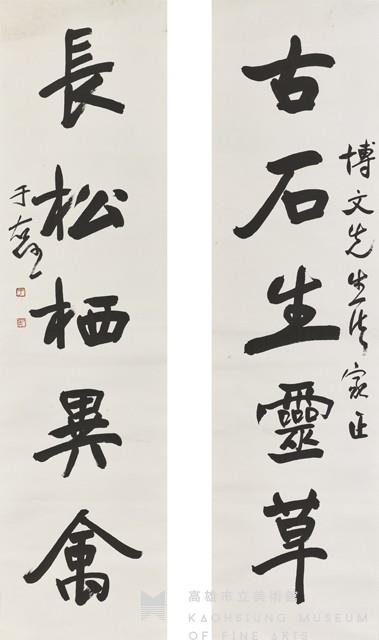 博文先生法家正
古石生靈草
長松栖異禽
于右任
高雄市立美術館
KAOHSIUNG MUSEUM
OF FINE ARTS